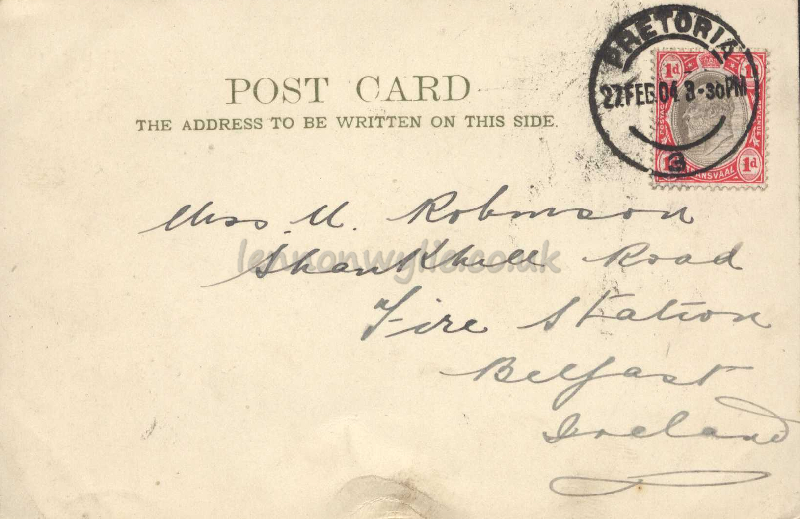 PRETORIA
27.FEB.04 3-30PM
3
1d 1d
POSTAGE REVENUE
1d 1d
TRANSVAAL
POST CARD
THE ADDRESS TO BE WRITTEN ON THIS SIDE.
Miss M. Robinson
lennonwylie.co.uk
Shankhill Road
Fire Station
Belfast
Ireland